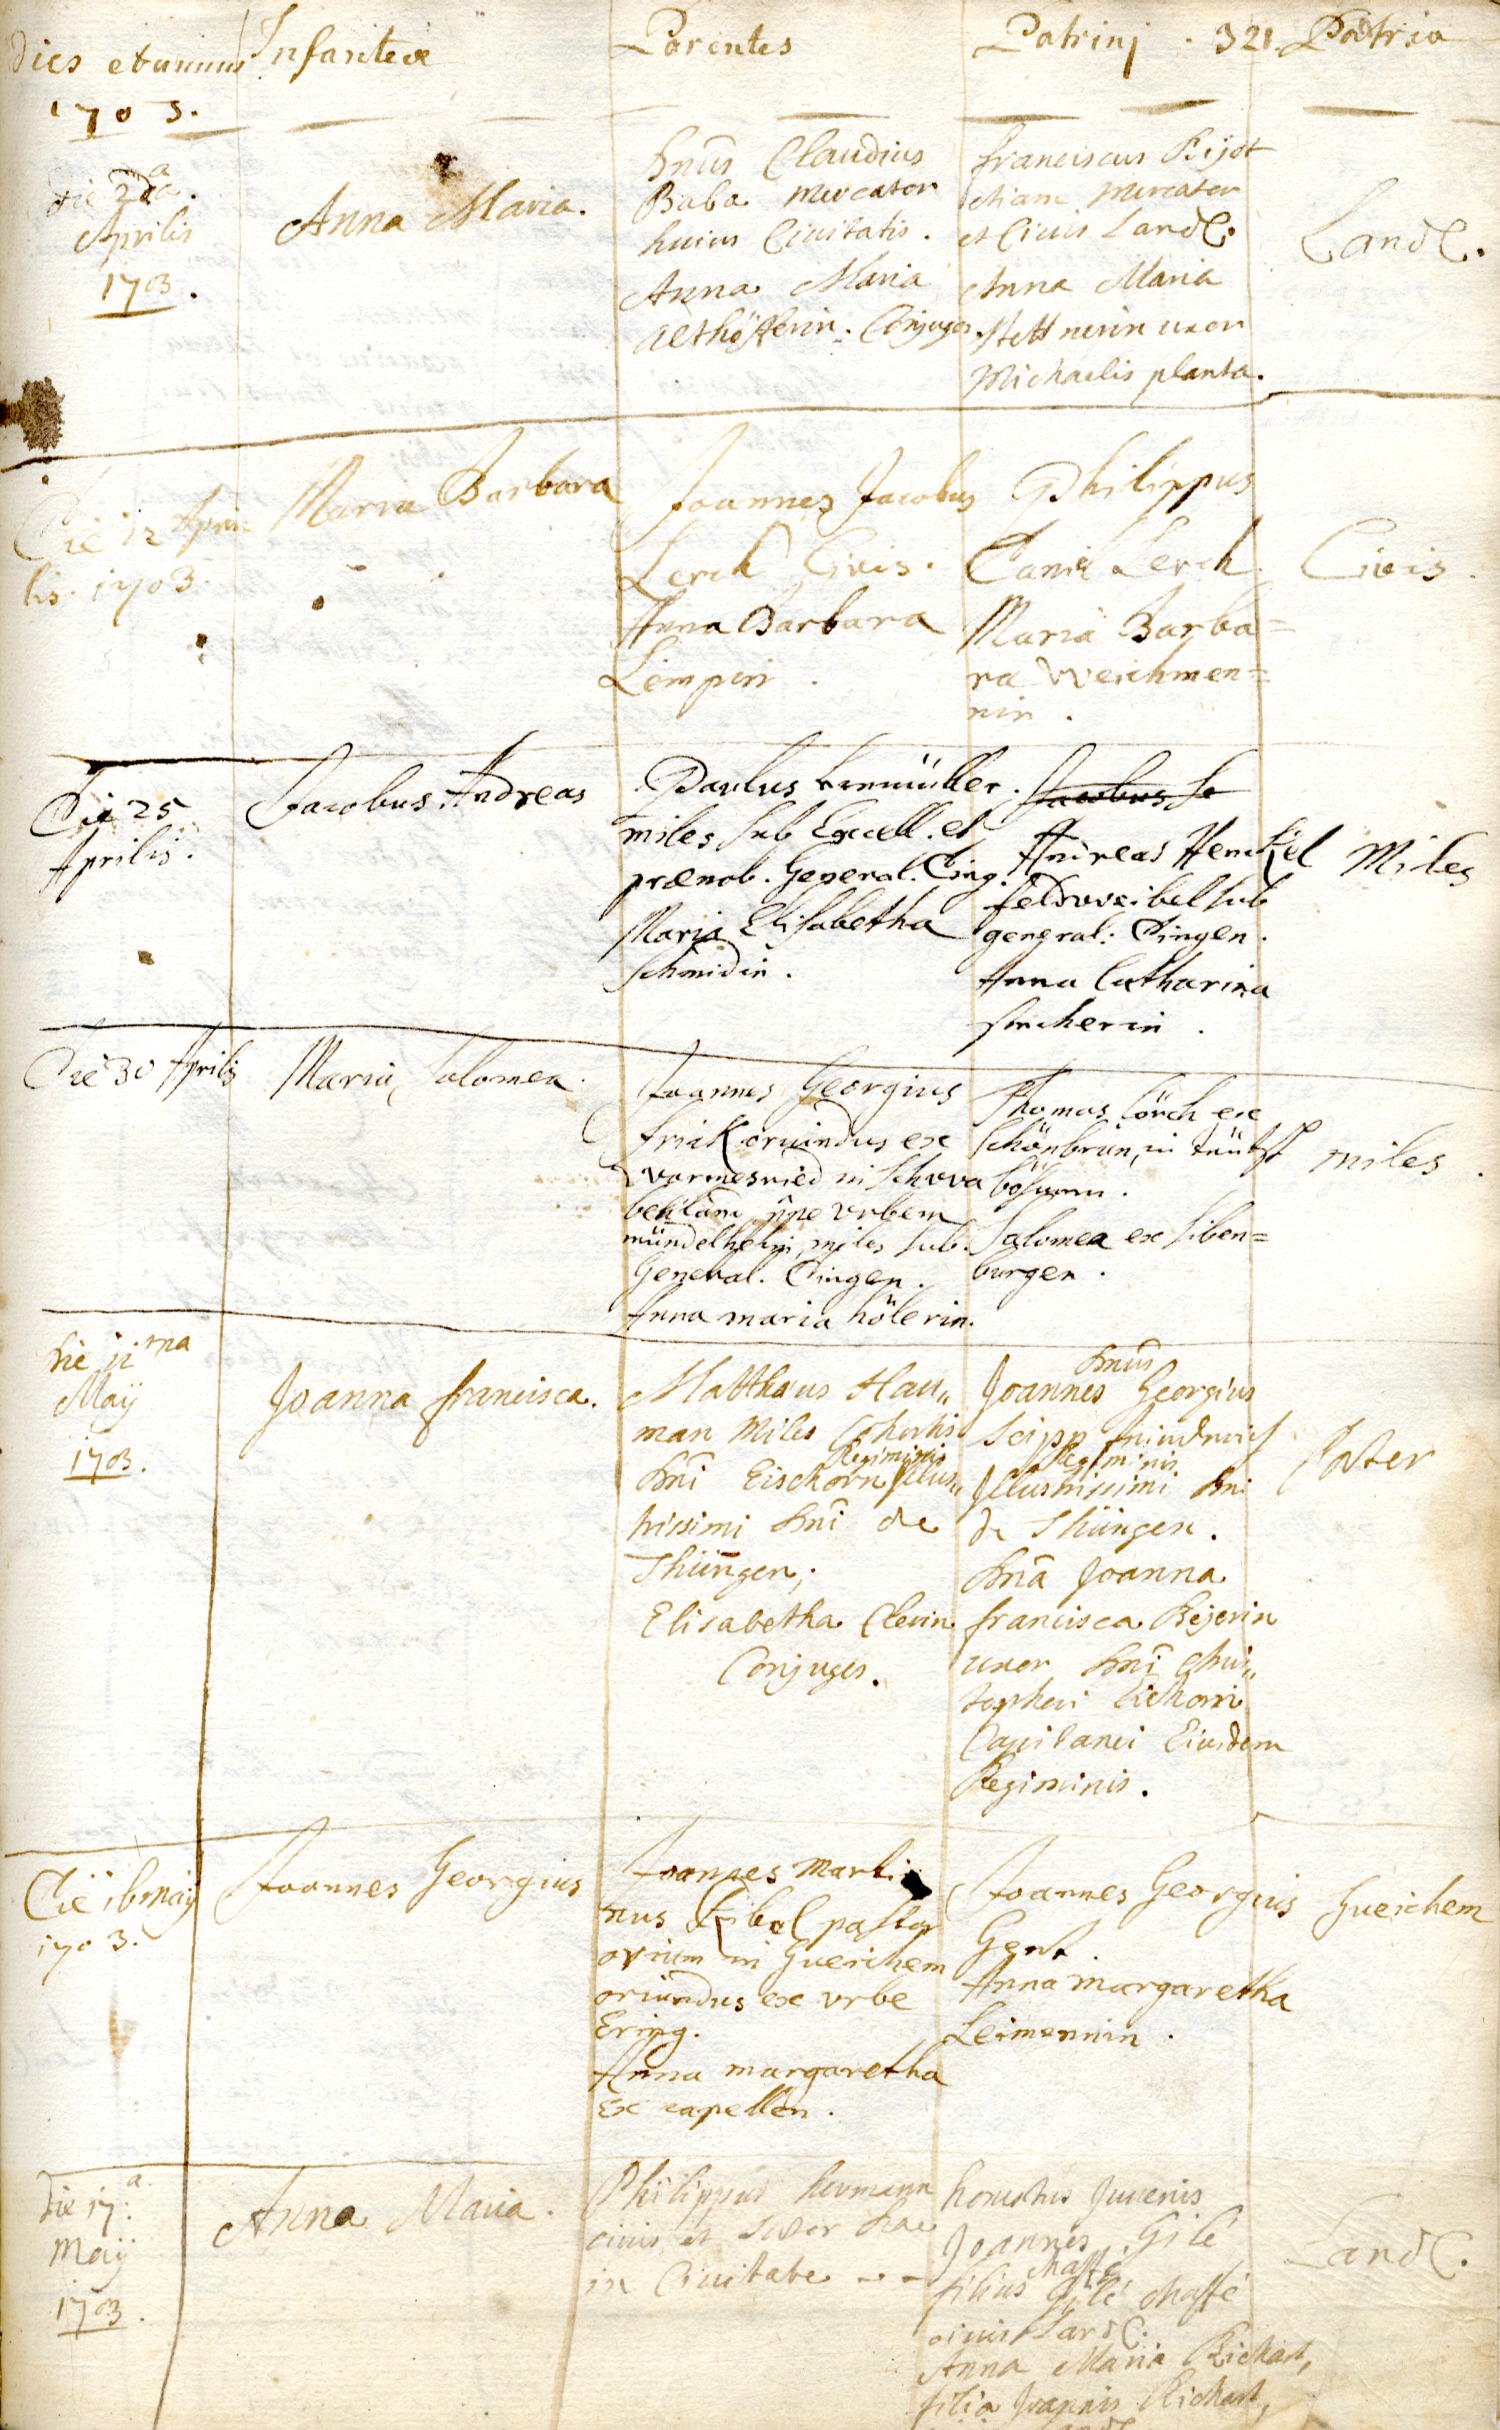 Dies et annus
Infantes
Parentes
Patrinj . 321.
Patria
1703.
die 2da.
Aprilis
1703.
Anna Maria.
Dnus Claudius
Baba Mercator
huius Civitatis.
Anna Maria
Conjuges.
Franciscus
etiam Mercator
et Civis Land.
Anna Maria
uxor
Michaelis planta.
Land.
Die 12 Apri-
lis. 1703.
Maria Barbara
Joannes Jacobus
Lerch Civis.
Anna Barbara
Lempin.
Philippus
Daniel Lerch.
Maria Barba=
ra Weichmen=
nin.
Civis.
Die 25
Aprilis.
Jacobus Andreas
Paulus
miles sub Excell. et
prænob. General. Ting.
Maria Elisabetha
schmidin.
Andreas Henckel
feldtweibel sub
general: Tingen.
Anna Catharina
Miles
Die 30 Aprilis
Maria Salomea.
Joannes Georgius
frick oriundus ex
wormesried in Schwa
urbem
mündelheim, miles sub.
General. Tingen.
Anna maria hölerin.
Thomas Lörch ex
Schönbrun, in
Salomea ex siben=
burgen.
miles.
die 11ma
Maÿ
1703.
Joanna francisca.
Matthæus Hau„
man Miles Cohortis
Regiminis
Dni Eischorn Illus„
trissimi Dni de
Thüngen;
Elisabetha
Conjuges.
Dnus
Joannes Georgius
Seipp
Regiminis
Illustrissimi Dni
de Thüngen.
Dna Joanna
francisca Beyerin
uxor Dni Chris„
tophori Eichorn
Capitanei Eiusdem
Regiminis.
Pater
Die 16 maÿ
1703.
Joannes Georgius
Joannes Marti
nus Kibel pastor
ovium in Gueichem
oriundus ex urbe
Ering.
Anna margaretha
Ex capellen.
Joannes Georgius
Gent.
Anna margaretha
Leimennin.
Gueichem
Die 17.a
Maÿ
1703.
Anna Maria.
Philippus hermann
civis et sutor hac
in Civitate - -
honestus Juvenis
Joannes Gilé
Maffé
filius Gilé Maffé
civis Land.
Anna Maria Richart,
filia Joannis Richart,
Land.